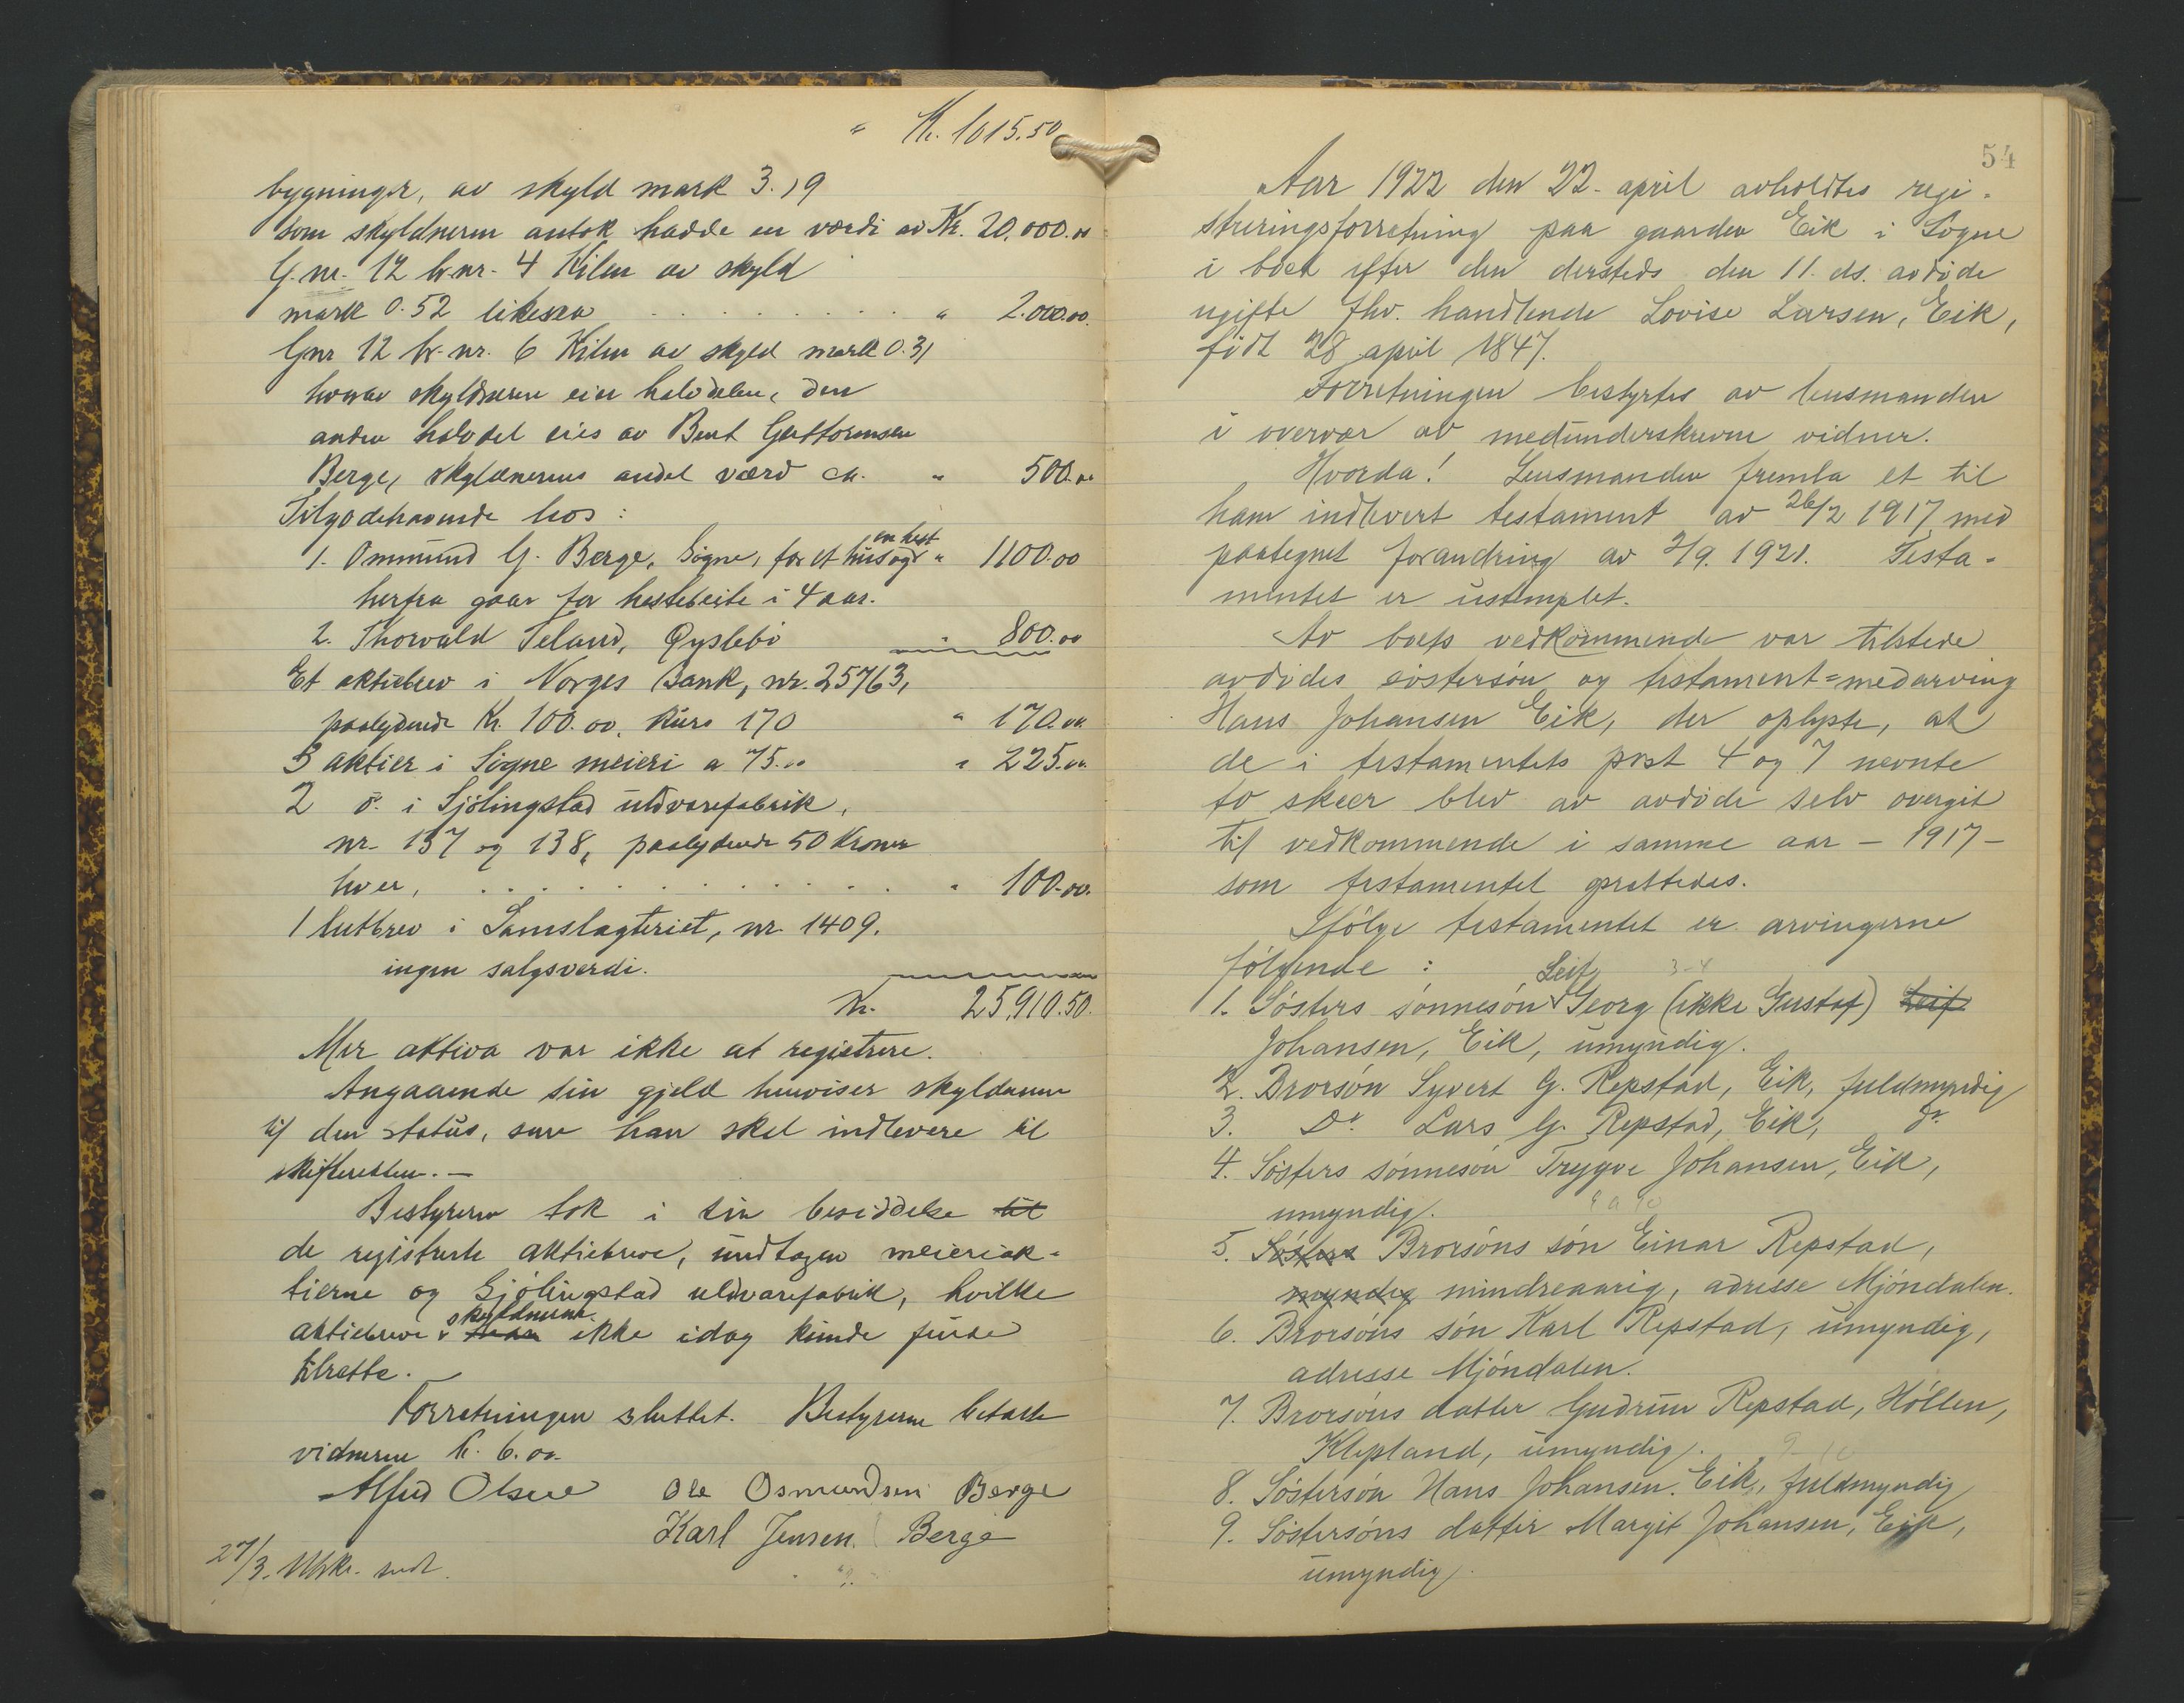 " Kr. 1015.50
bygninger, av skyld mark 3.19
som skyldneren antok hadde en værdi av Kr. 20.000.00
G.nr. 12 br.nr. 4 Kilen av skyld
mark 0.52 likesaa . . . . . . . . . . " 2.000.00.
Gnr 12 br.nr. 6 Kilen av skyld mark 0.31
hvorav skyldneren eier halvdelen, den
anden halvdel eies av Bent Guttormsen
Berge, skyldnerens andel værd ca. " 500.00
Tilgodehavende hos:
1. Ommund G. Berge, Søgne, for et hus og en hest " 1100.00
herfra gaar for hestebeite i 4 aar.
2. Thorvald Teland, Øyslebø " 800.00
Et aktiebrev i Norges Bank, nr. 25763,
paalydende Kr. 100.00, kurs 170 " 170.00
3 aktier i Søgne meieri a 75.00 " 225.00
2 d. i Sjølingstad uldvarefabrik,
nr. 137 og 138, paalydende 50 Kroner
hver, . . . . . . . . . . . . . " 100.00.
1 lutbrev i Samslagteriet, nr. 1409.
ingen salgsverdi.
Kr. 25.910.50.
Mer aktiva var ikke at registrere.
Angaaende sin gjeld henviser skyldneren
til den status, som han skal indlevere til
skifteretten. —
Bestyreren tok i sin besiddelse til
de registrerte aktiebreve, undtagen meieriak-
tierne og Sjølingstad uldvarefabrik, hvilke
aktiebreve skyldneren ikke idag kunde finde
tilrette.
Forretningen sluttet. Bestyreren betalte
vidnerne kr. 6.00.
Alfred Olsen Ole Osmundsen Berge
Karl Jensen Berge
27/3. Utskr. sendt.
54
Aar 1922 den 22. april avholdtes regi-
streringsforretning paa gaarden Eik i Søgne
i boet efter den dersteds den 11. ds. avdøde
ugifte fhv. handlende Lovise Larsen, Eik,
født 28 april 1847.
Forretningen bestyrtes av lensmanden
i overvær av medunderskrevne vidner.
Hvorda! Lensmanden fremla et til
ham indlevert testament av 26/2 1917 med
paategnet forandring av 2/9. 1921. Testa-
mentet er ustemplet.
Av boets vedkommende var tilstede
avdødes søstersøn og testament=medarving
Hans Johansen Eik, der oplyste, at
de i testamentets post 4 og 7 nevnte
to skeer blev av avdøde selv overgit
til vedkommende i samme aar – 1917 –
som testamentet oprettedes.
Ifølge testamentet er arvingerne
følgende:
1. Søsters sønnesøn Leif Georg (ikke Gustaf) Leif
Johansen, Eik, umyndig.
2. Brorsøn Syvert G. Repstad, Eik, fuldmyndig
3. Do Lars G. Repstad, Eik, do
4. Søsters sønnesøn Trygve Johansen, Eik,
umyndig.
5. Søsters Brorsøns søn Einar Repstad,
myndig mindreaarig, adresse Mjøndalen.
6. Brorsøns søn Karl Repstad, umyndig,
adresse Mjøndalen.
7. Brorsøns datter Gudrun Repstad, Høllen,
Klepland, umyndig.
8. Søstersøn Hans Johansen Eik, fuldmyndig
9. Søstersøns datter Margit Johansen, Eik,
umyndig.